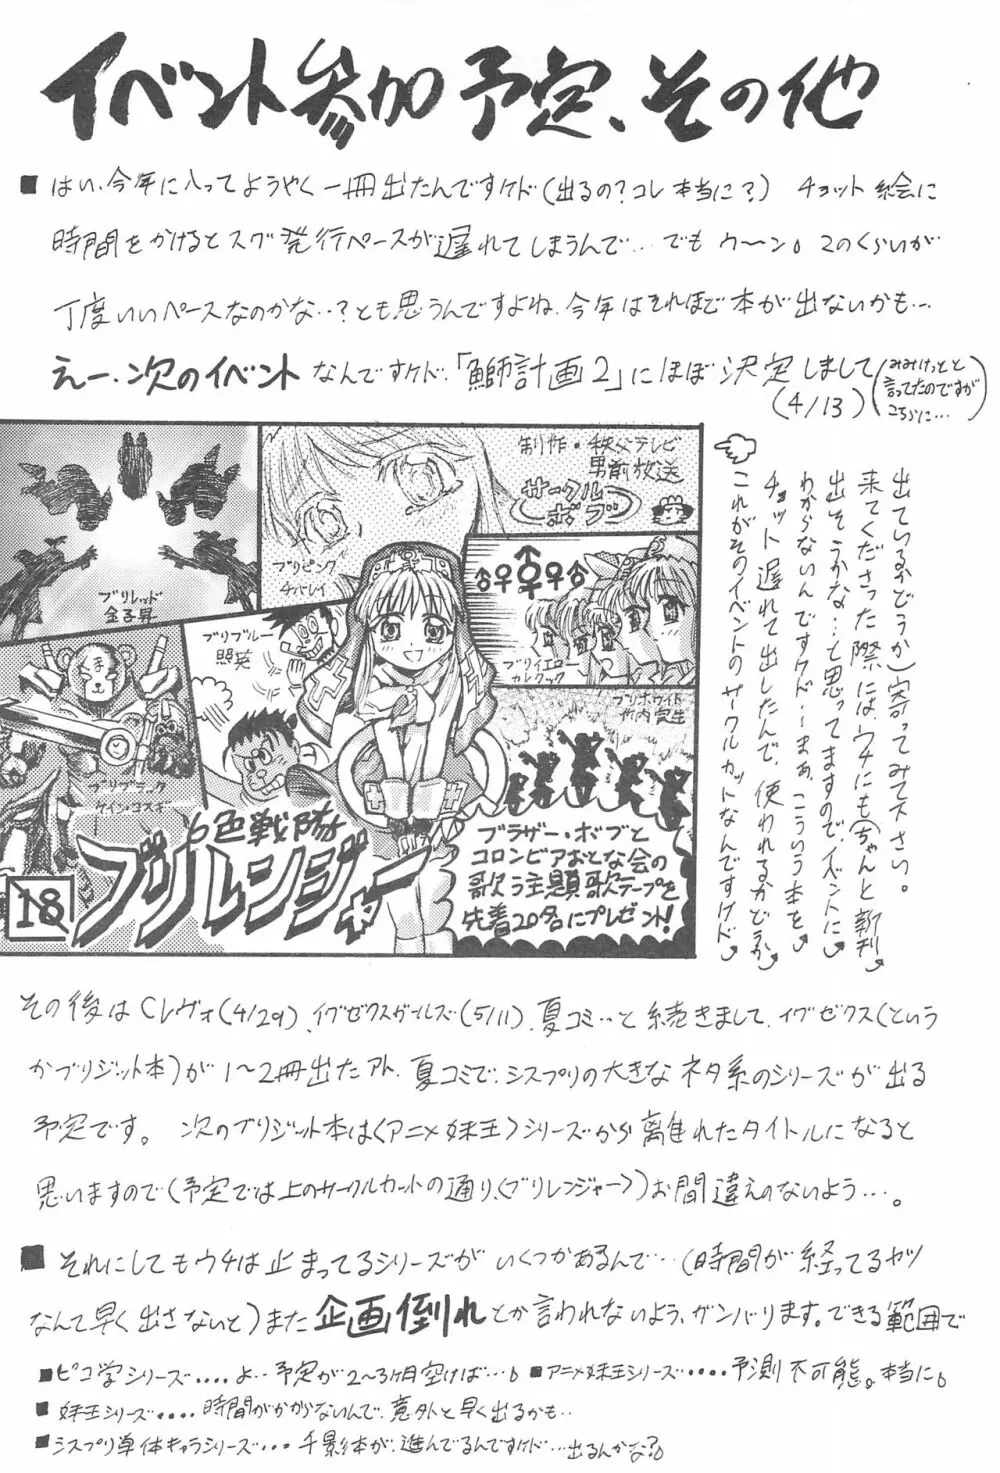 イベント参加予定、その他
■はい、今年に入ってようやく一冊出たんですケド(出るの?コレ本当に?) チョット絵に
時間をかけるとスグ発行ペースが遅れてしまうんで…でもウ〜ン。2のくらいが
丁度いいペースなのかな‥?とも思うんですよね、今年はそれほど本が出ないかも…
えー、次のイベントなんですケド、「鰤計画2」にほぼ決定しまして
(4/13)
(みみけっとと
言ってたのですが
こちらに…)
制作・秩父テレビ
男前放送
サークル
ボブ
ブリピンク
チバレイ
ブリレッド
金子昇
ブリブルー
照英
ブリイエロー
カレクック
ブリホワイト
竹内実生
くま
ブリブラック
ケイン・コスギ
6色戦隊
ブリレンジャー
18
ブラザー・ボブと
コロンビアおとな会の
歌う主題歌テープを
先着20名にプレゼント!
出ているかどうか)寄ってみて下さい。
来てくださった際には、ウチにも(ちゃんと新刊
出そうかな…と思ってますのでイベントに
わからないんですケド…まあ、こういう本を
チョット遅れて出したんで、使われるかどうか
これがそのイベントのサークルカットなんですけド
その後はCレヴォ(4/29)、イグゼクスガールズ(5/11)、夏コミ‥と続きまして、イグゼクス(という
かブリジット本)が1〜2冊出たアト、夏コミで、シスプリの大きなネタ系のシリーズが出る
予定です。 次のブリジット本は<アニメ妹王>シリーズから離れたタイトルになると
思いますので(予定では上のサークルカットの通り、<ブリレンジャー>)お間違えのないよう…。
■それにしてもウチは止まってるシリーズがいくつかあるんで…(時間が経ってるヤツ
なんて早く出さないと)また企画倒れとか言われないよう、ガンバります。できる範囲で
■ピコ学シリーズ‥‥よ‥予定が2〜3ヶ月空けば…。 ■アニメ妹王シリーズ‥‥予測不可能。本当に。
■妹王シリーズ‥‥時間がかからないんで、意外と早く出るかも‥
■シスプリ単体キャラシリーズ…千影本が、進んでるんですけド…出るんかな?。